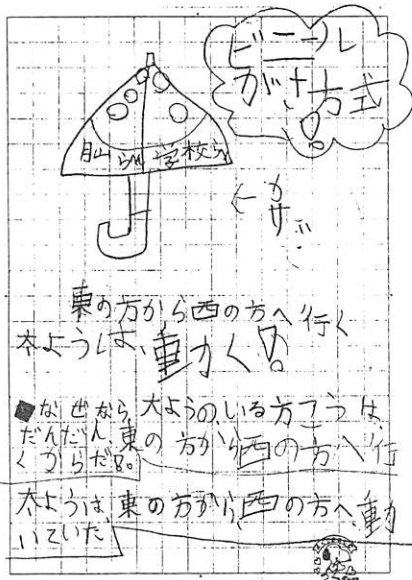 ビニール
がさ方式
学校
←かさ
東の方から西の方へ行く
太ようは、動かく!
なぜなら、太ようのいる方こうは、
だんだん、東の方から西の方へ行
くからだ。
太ようは、東の方から、西の方へ、動
いていた。